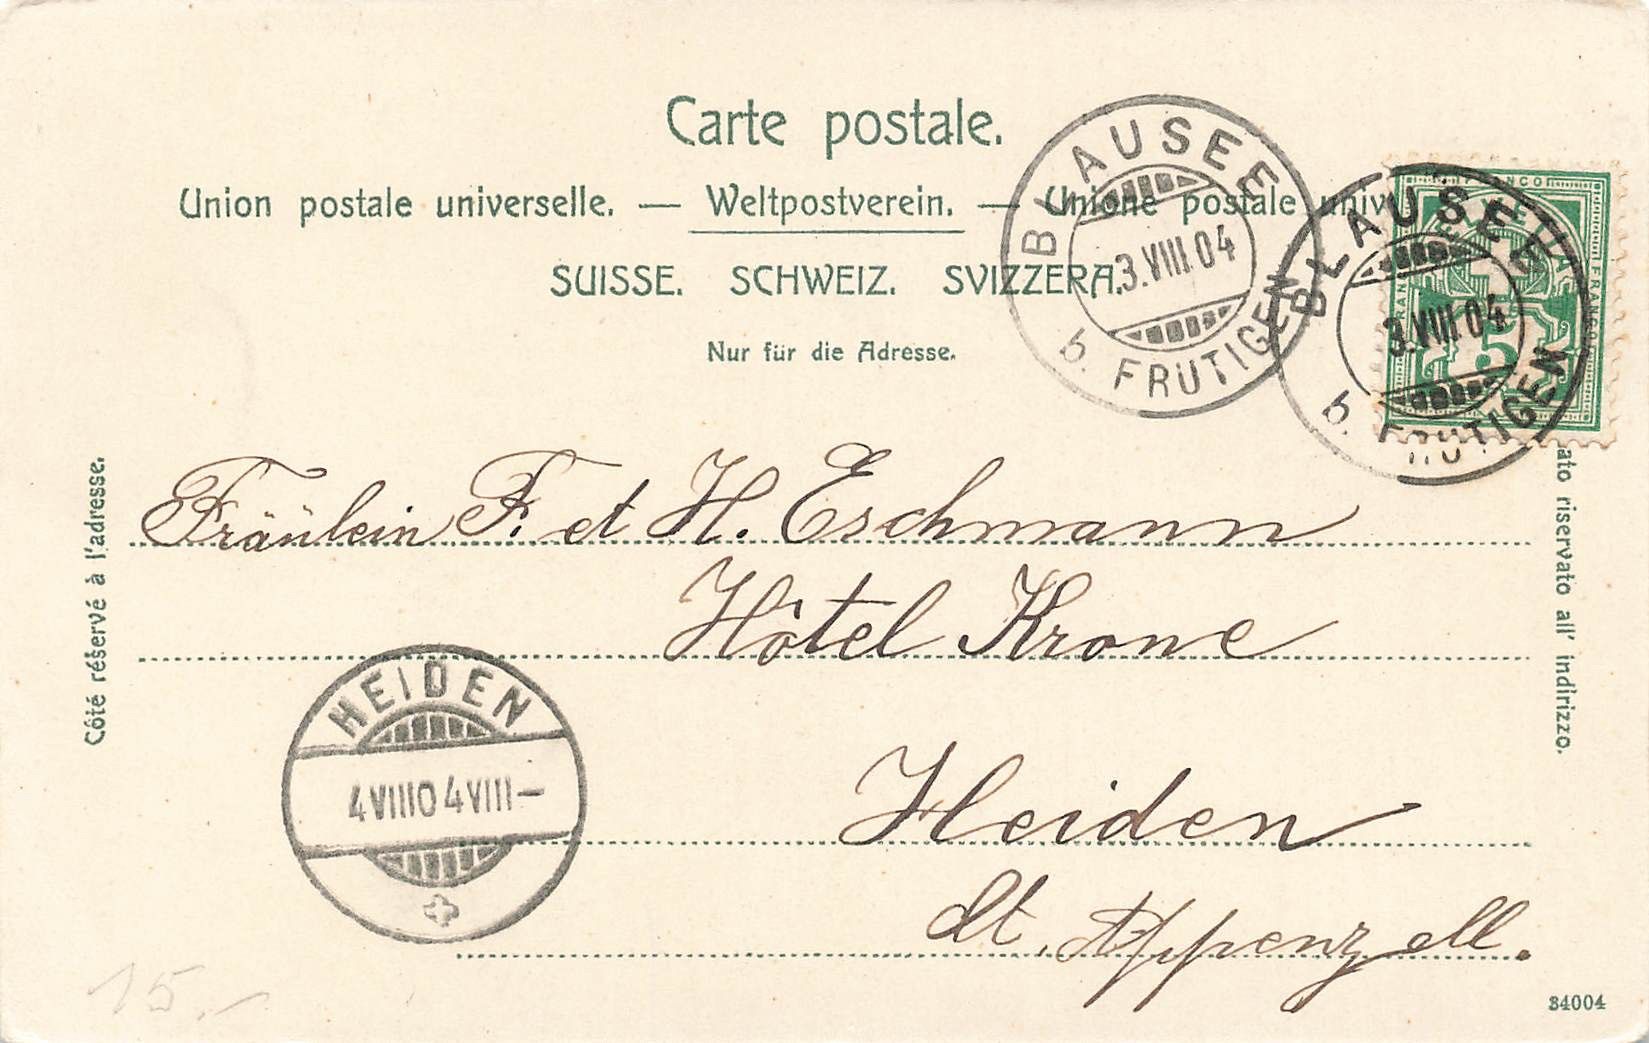 Carte postale.
Union postale universelle. — Weltpostverein. — Unione postale univ
SUISSE. SCHWEIZ. SVIZZERA.
Nur für die Adresse.
BLAUSEE
3.VIII.04
b. FRUTIGEN
BLAUSEE
3.VIII.04
b. FRUTIGEN
5
Côté réservé à l'adresse.
ato riservato all' indirizzo.
Fräulein F. et H. Eschmann
Hôtel Krone
Heiden
Ct. Appenzell.
HEIDEN
4VIII04VIII–
15.–
34004